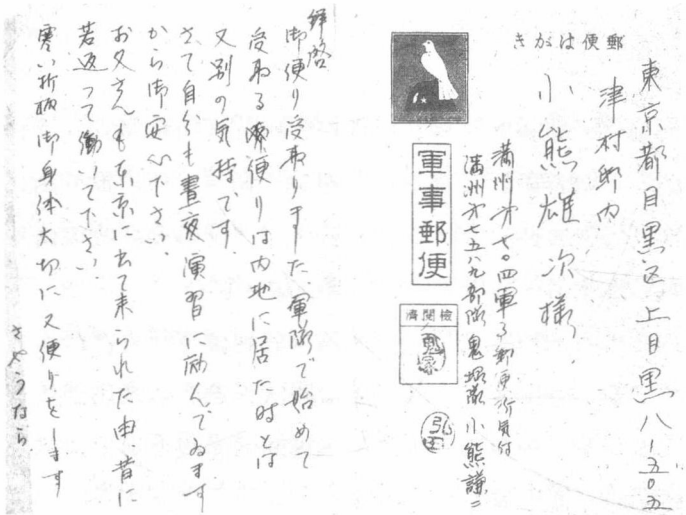 郵便はがき
東京都目黒区上目黒八ー五〇五
津村邸内
小熊雄次様
満州第七〇四軍事郵便所気付
満州第七五八九部隊鬼塚隊
小熊謙二
軍事郵便
検閲済
鬼塚
拝啓
御便り受取りました、軍隊で始めて
受取る御便りは内地に居た時とは
又別の気持です、
さて自分も昼夜演習に励んでゐます
から御安心下さい、
お父さんも東京に出て来られた由昔に
若返って働いて下さい、
寒い折柄御身体大切に又便りをします
さやうなら